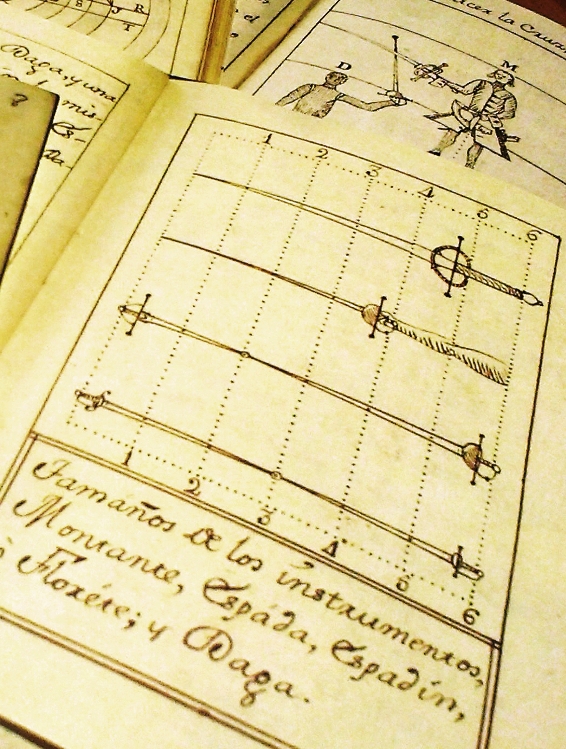 R
T
Daga, y una
mis-
la Cruz
D
M
1 2 3 4 5 6
1 2 3 4 5 6
Tamaños de los instrumentos,
Montante, Espáda, Espadín,
ò Floréte; y Daga.